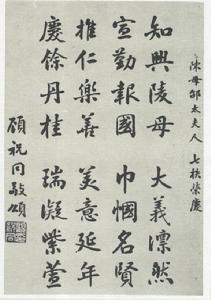 陳母邹太夫人七秩榮慶
知興陵母 大義凛然
宣勤報國 巾幗名賢
推仁樂善 美意延年
慶餘丹桂 瑞凝紫萱
顧祝同敬頌